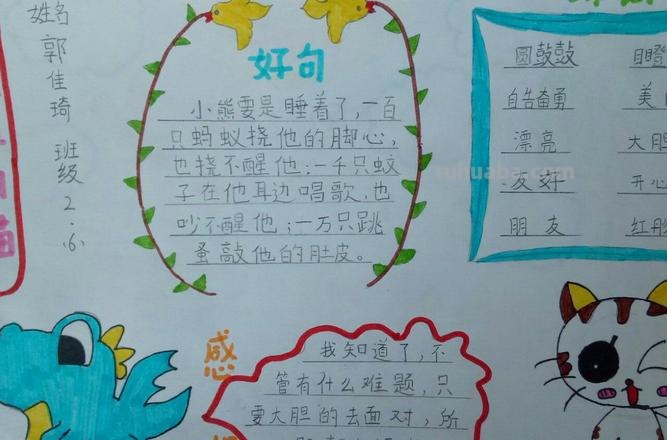 姓名
郭佳琦
班级
2.6
好句
小熊要是睡着了,一百
只蚂蚁挠他的脚心,
也挠不醒他;一千只蚊
子在他耳边唱歌,也
吵不醒他;一万只跳
蚤敲他的肚皮。
圆鼓鼓
自告奋勇 美
漂亮 大胆
友好 开心
朋友
ruhuaba.com
感
我知道了,不
管有什么难题,只
要大胆的去面对,所